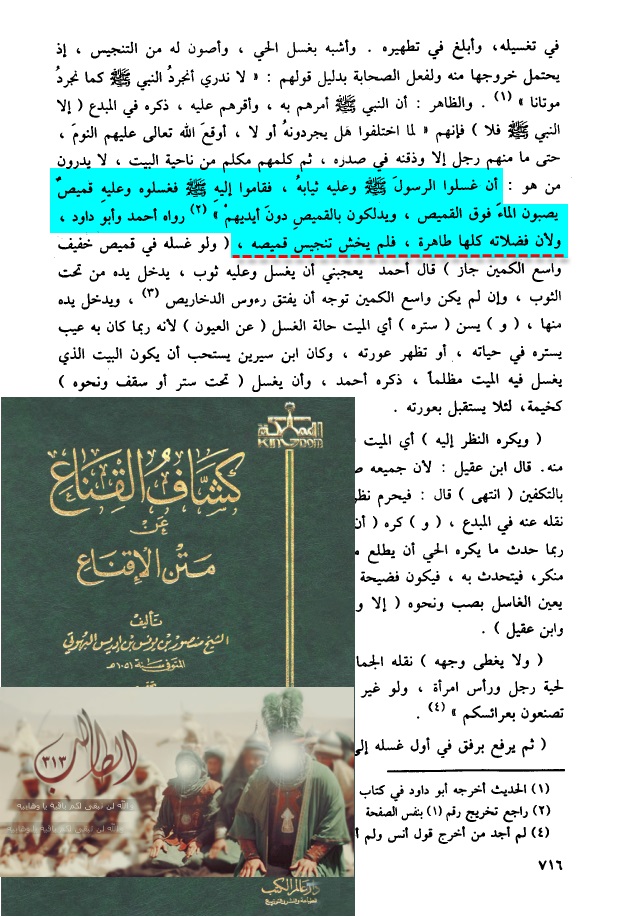 في تغسيله، وأبلغ في تطهيره . وأشبه بغسل الحي ، وأصون له من التنجيس ، إذ
يحتمل خروجها منه ولفعل الصحابة بدليل قولهم : « لا ندري أنجردُ النبي ﷺ كما نجردُ
موتانا » (١) . والظاهر : أن النبي ﷺ أمرهم به ، وأقرهم عليه ، ذكره في المبدع ( إلا
النبي ﷺ فلا ) فإنهم « لما اختلفوا هَل يجردونهُ أو لا ، أوقعَ الله تعالى عليهم النومَ ،
حتى ما منهم رجل إلا وذقنه في صدره ، ثم كلمهم مكلم من ناحية البيت ، لا يدرون
من هو : أن غسلوا الرسولَ ﷺ وعليه ثيابهُ ، فقاموا إليهِ ﷺ فغسلوه وعليهِ قميصٌ
يصبون الماءَ فوق القميص ، ويدلكون بالقميصِ دونَ أيديهمْ » (٢) رواه أحمد وأبو داود ،
ولأن فضلاته كلها طاهرة ، فلم يخش تنجيس قميصه ، ( ولو غسله في قميص خفيف
واسع الكمين جاز ) قال أحمد يعجبني أن يغسل وعليه ثوب ، يدخل يده من تحت
الثوب ، وإن لم يكن واسع الكمين توجه أن يفتق رءوس الدخاريص (٣) ، ويدخل يده
منها ، ( و ) يسن ( ستره ) أي الميت حالة الغسل ( عن العيون ) لأنه ربما كان به عيب
يستره في حياته ، أو تظهر عورته ، وكان ابن سيرين يستحب أن يكون البيت الذي
يغسل فيه الميت مظلماً ، ذكره أحمد ، وأن يغسل ( تحت ستر أو سقف ونحوه )
كخيمة، لئلا يستقبل بعورته .
( ويكره النظر إليه ) أي الميت
منه. قال ابن عقيل : لأن جميعه
بالتكفين ( انتهى ) قال : فيحرم
نقله عنه في المبدع ، ( و ) كره ( أن
ربما حدث ما يكره الحي أن يطلع
منكر، فيتحدث به ، فيكون فضيحة
يعين الغاسل بصب ونحوه ( إلا
وابن عقيل ) .
( ولا يغطى وجهه ) نقله
لحية رجل ورأس امرأة ، ولو غير
تصنعون بعرائسكم » (٤) .
( ثم يرفع برفق في أول غسله
(١) الحديث أخرجه أبو داود في كتاب
(٢) راجع تخريج رقم (١) بنفس الصفحة
(٤) لم أجد من أخرج قول أنس ولم
٧١٦
المملكة
KINGDOM
كشاف القناع
عن
متن الإقناع
تأليف
الشيخ منصور بن يونس بن إدريس البهوتي
المتوفى سنة ١٠٥١ هـ
الطالب
٣١٣
والله لن تبقى لكم باقية يا وهابية
والله لن تبقى لكم باقية يا وهابية
دار عالم الكتب
للطباعة والنشر والتوزيع